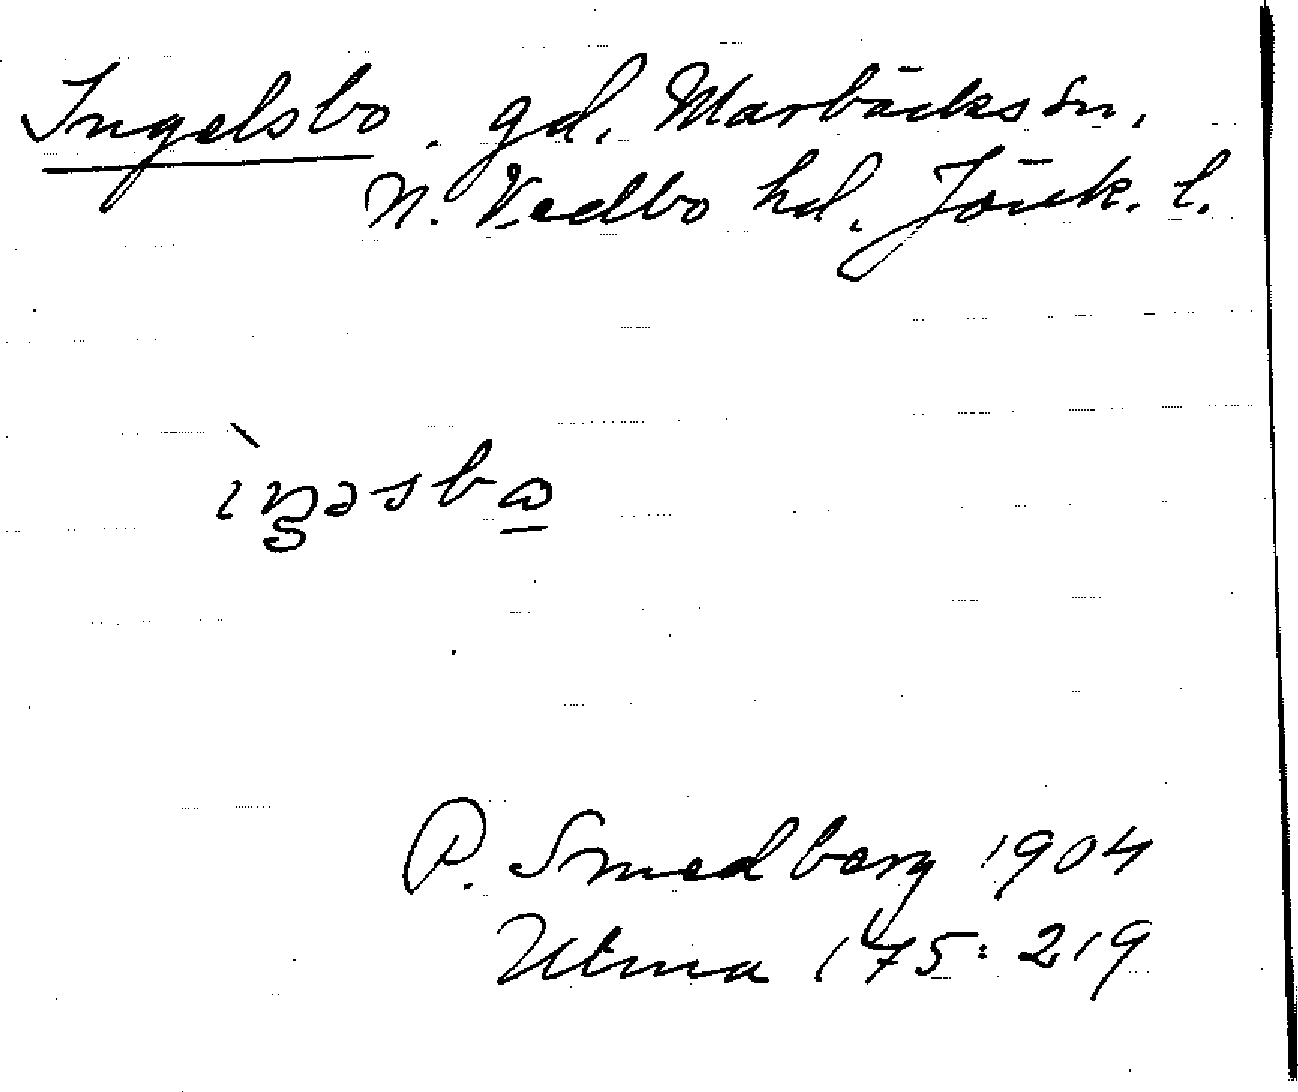 Ingelsbo. gd. Marbäcks sn.
N. Vedbo hd. Jönk. l.
ìŋəsbo
P. Smedberg 1904
Utma 175: 219